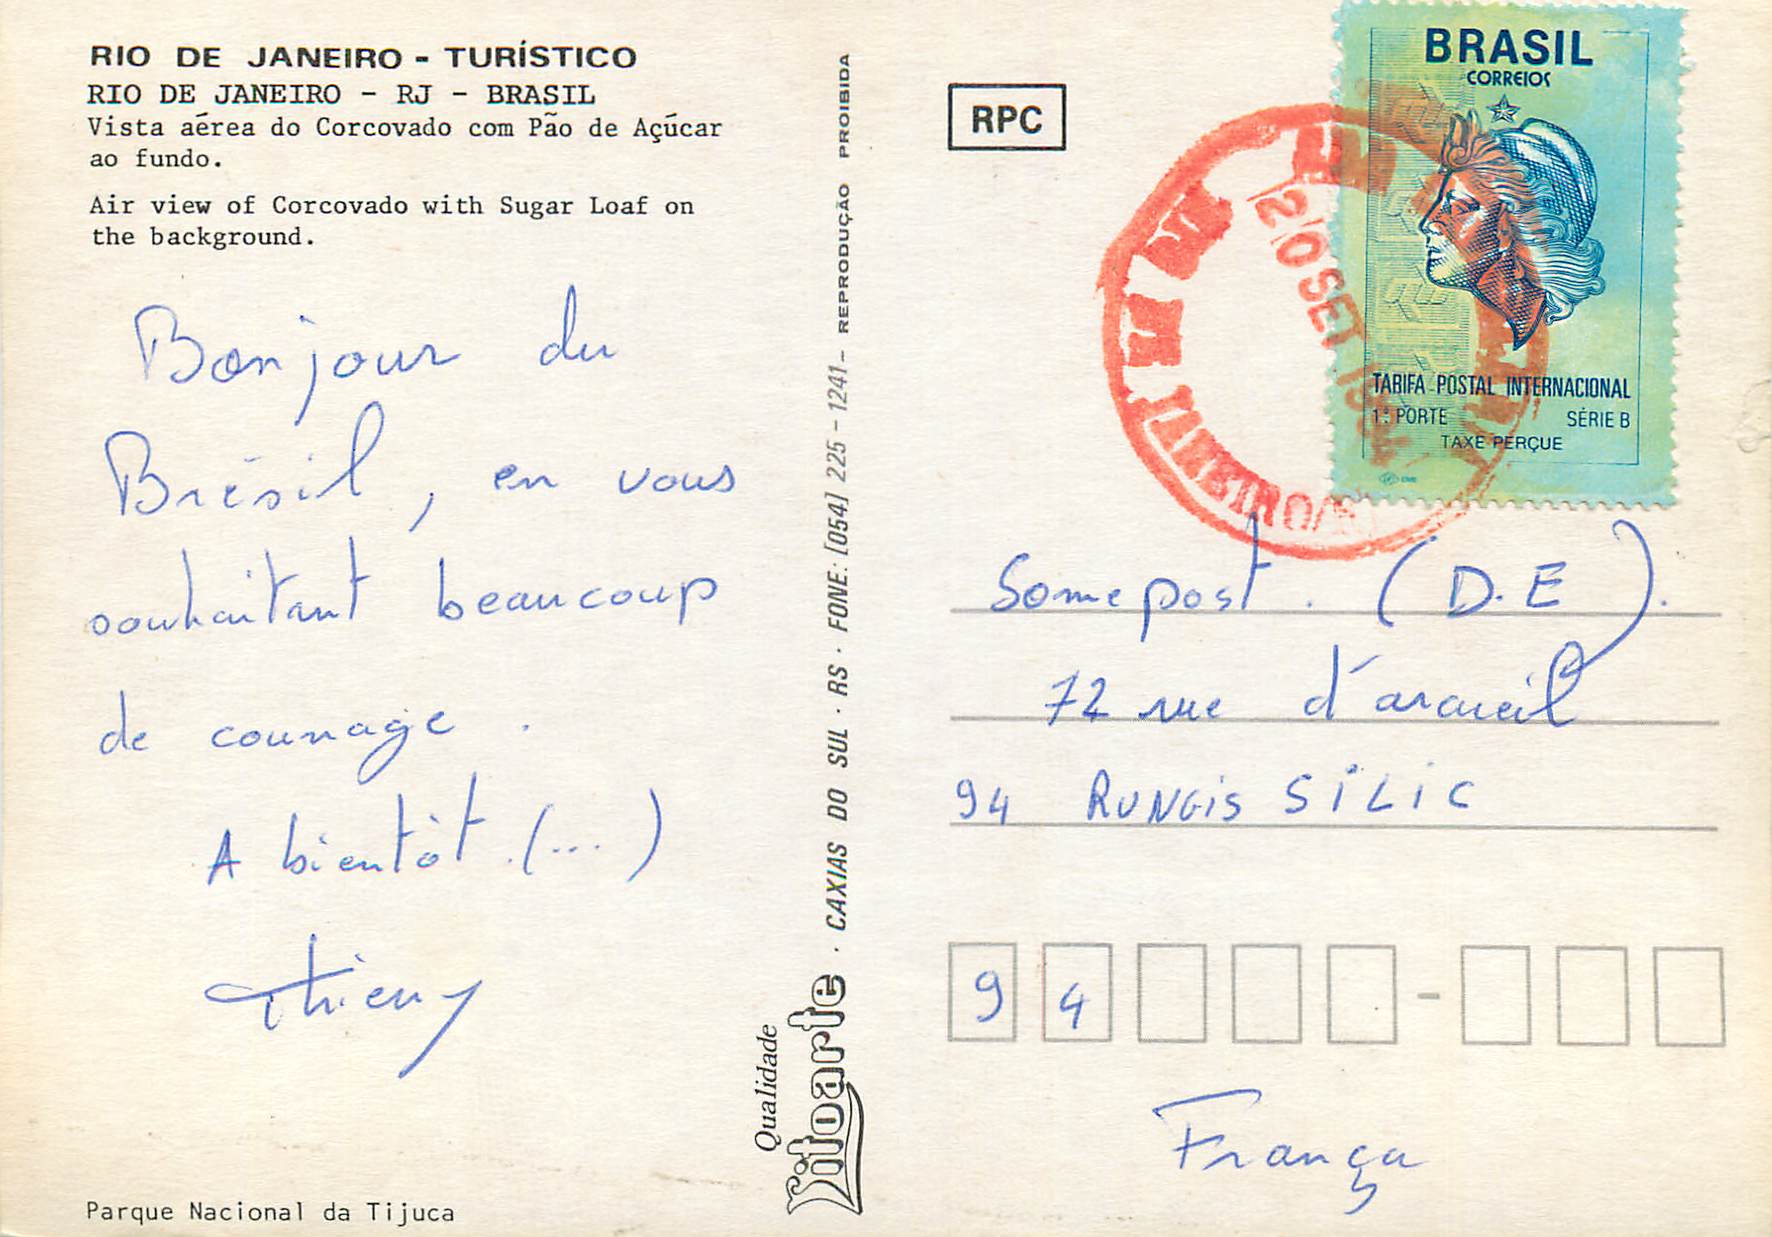 RIO DE JANEIRO - TURÍSTICO
RIO DE JANEIRO - RJ - BRASIL
Vista aérea do Corcovado com Pão de Açúcar
ao fundo.
Air view of Corcovado with Sugar Loaf on
the background.
Bonjour du
Brésil, en vous
souhaitant beaucoup
de courage.
A bientôt.(...)
Thierry
Parque Nacional da Tijuca
Qualidade
Litoarte · CAXIAS DO SUL · RS · FONE: [054] 225 - 1241 - REPRODUÇÃO PROIBIDA
RPC
BRASIL
CORREIOS
TARIFA POSTAL INTERNACIONAL
1º PORTE SÉRIE B
TAXE PERÇUE
20 SET
JANEIRO/
Somepost. (D.E).
72 rue d'arcueil
94 RUNGIS SILIC
94
França